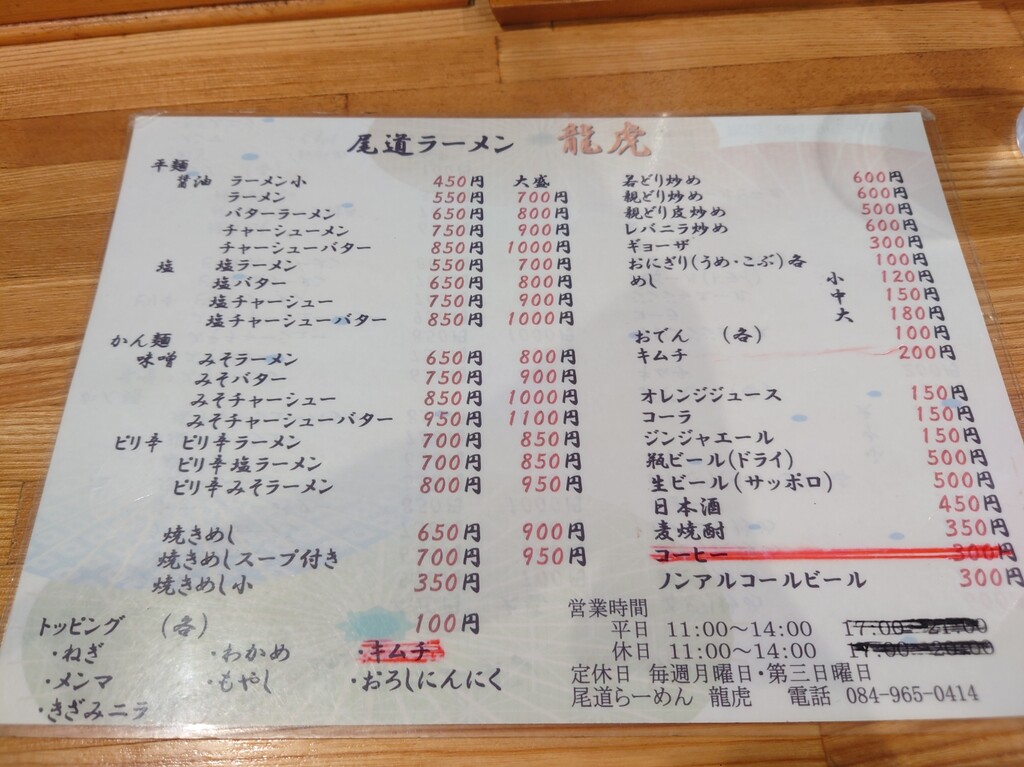 尾道ラーメン 龍虎
平麺
醤油 ラーメン小 450円 大盛
ラーメン 550円 700円
バターラーメン 650円 800円
チャーシューメン 750円 900円
チャーシューバター 850円 1000円
塩 塩ラーメン 550円 700円
塩バター 650円 800円
塩チャーシュー 750円 900円
塩チャーシューバター 850円 1000円
かん麺
味噌 みそラーメン 650円 800円
みそバター 750円 900円
みそチャーシュー 850円 1000円
みそチャーシューバター 950円 1100円
ピリ辛 ピリ辛ラーメン 700円 850円
ピリ辛塩ラーメン 700円 850円
ピリ辛みそラーメン 800円 950円
焼きめし 650円 900円
焼きめしスープ付き 700円 950円
焼きめし小 350円
トッピング (各) 100円
・ねぎ ・わかめ ・キムチ
・メンマ ・もやし ・おろしにんにく
・きざみニラ
若どり炒め 600円
親どり炒め 600円
親どり皮炒め 500円
レバニラ炒め 600円
ギョーザ 300円
おにぎり(うめ・こぶ)各 100円
めし 小 120円
中 150円
大 180円
おでん (各) 100円
キムチ 200円
オレンジジュース 150円
コーラ 150円
ジンジャエール 150円
瓶ビール(ドライ) 500円
生ビール(サッポロ) 500円
日本酒 450円
麦焼酎 350円
コーヒー 300円
ノンアルコールビール 300円
営業時間
平日 11:00〜14:00 17:00〜21:00
休日 11:00〜14:00 17:00〜20:00
定休日 毎週月曜日・第三日曜日
尾道らーめん 龍虎 電話 084-965-0414